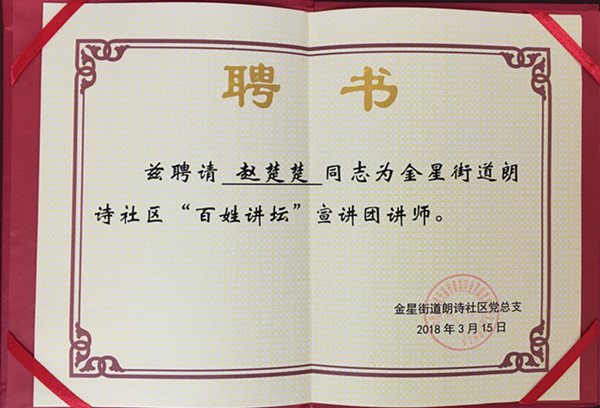 聘 书
兹聘请 赵楚楚 同志为金星街道朗
诗社区“百姓讲坛”宣讲团讲师。
金星街道朗诗社区党总支
2018年3月15日